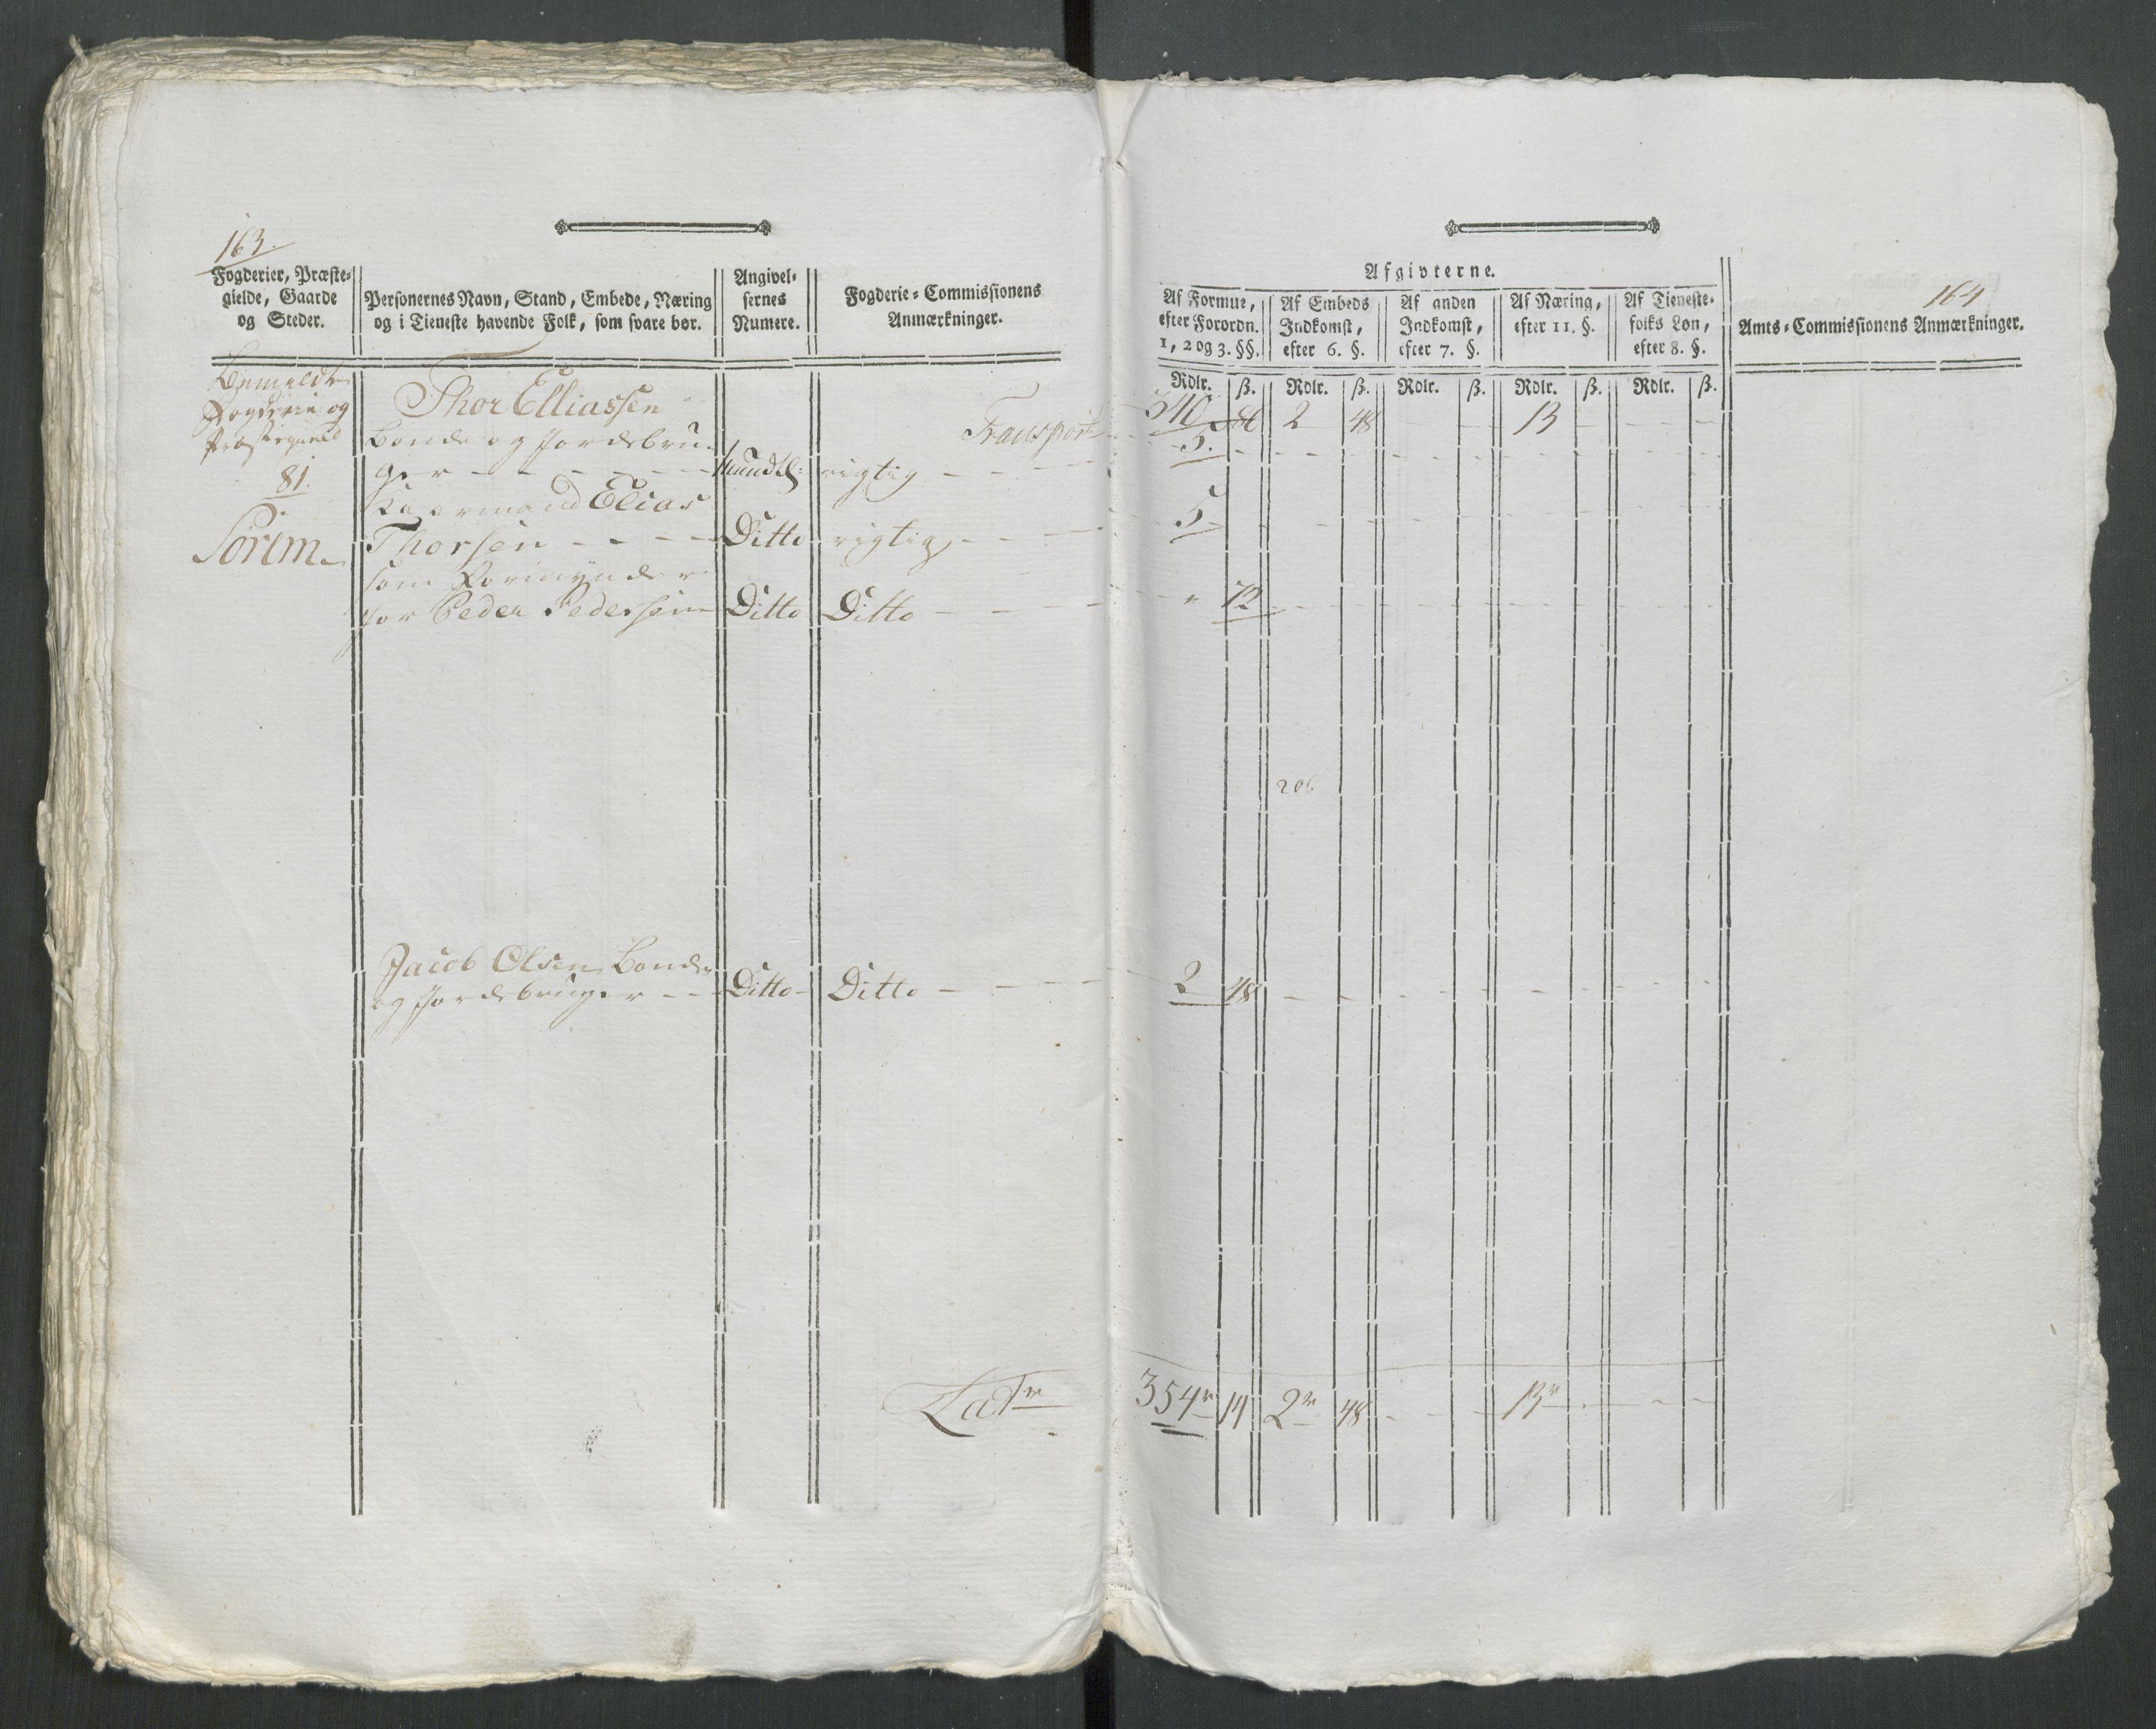 163.
Fogderier, Præste-
gielde, Gaarde
og Steder.
Personernes Navn, Stand, Embede, Næring
og i Tieneste havende Folk, som svare bør.
Angivel-
sernes
Numere.
Fogderie-Commissionens
Anmærkninger.
Bemeldte
Fogderie og
Præstegield
81.
Sørem
Thor Elliassen
Bonde og Jordebru-
ger
mundtl: rigtig
Transport
Elias
Thorsen Ditto rigtig
som Formynder
for Peder Pedersen Ditto Ditto
Jacob Olsen Bonde
og Jordebruger Ditto Ditto
Lat
164
Afgivterne.
Af Formue,
efter Forordn.
1, 2 og 3. §§.
Af Embeds
Indkomst,
efter 6. §.
Af anden
Indkomst,
efter 7. §.
Af Næring,
efter 11. §.
Af Tieneste-
folks Løn,
efter 8. §.
Amts-Commissionens Anmærkninger.
Rdlr. ß. Rdlr. ß. Rdlr. ß. Rdlr. ß. Rdlr. ß.
340 2 48 13
5.
5
" 72
206
2 48
354 14 2 48 13